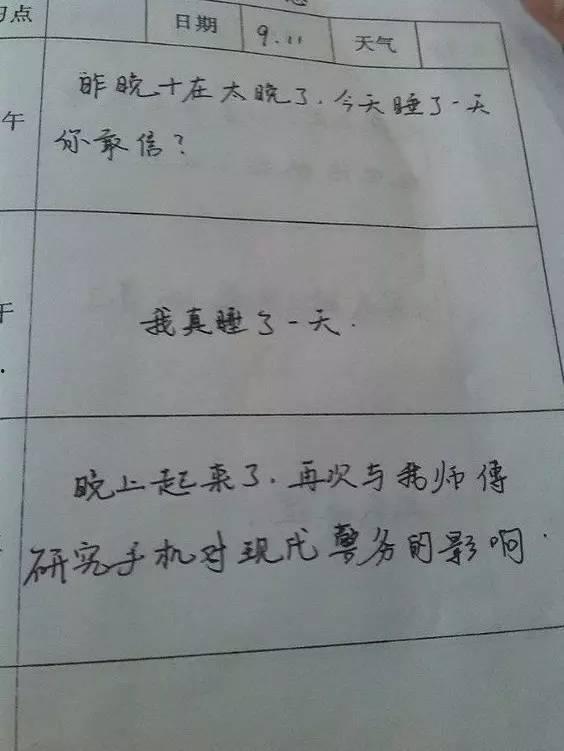 习点 日期 9.11 天气
午
昨晚十在太晚了.今天睡了一天
你敢信？
午
我真睡了一天.
晚上起来了.再次与我师傅
研究手机对现代警务的影响.